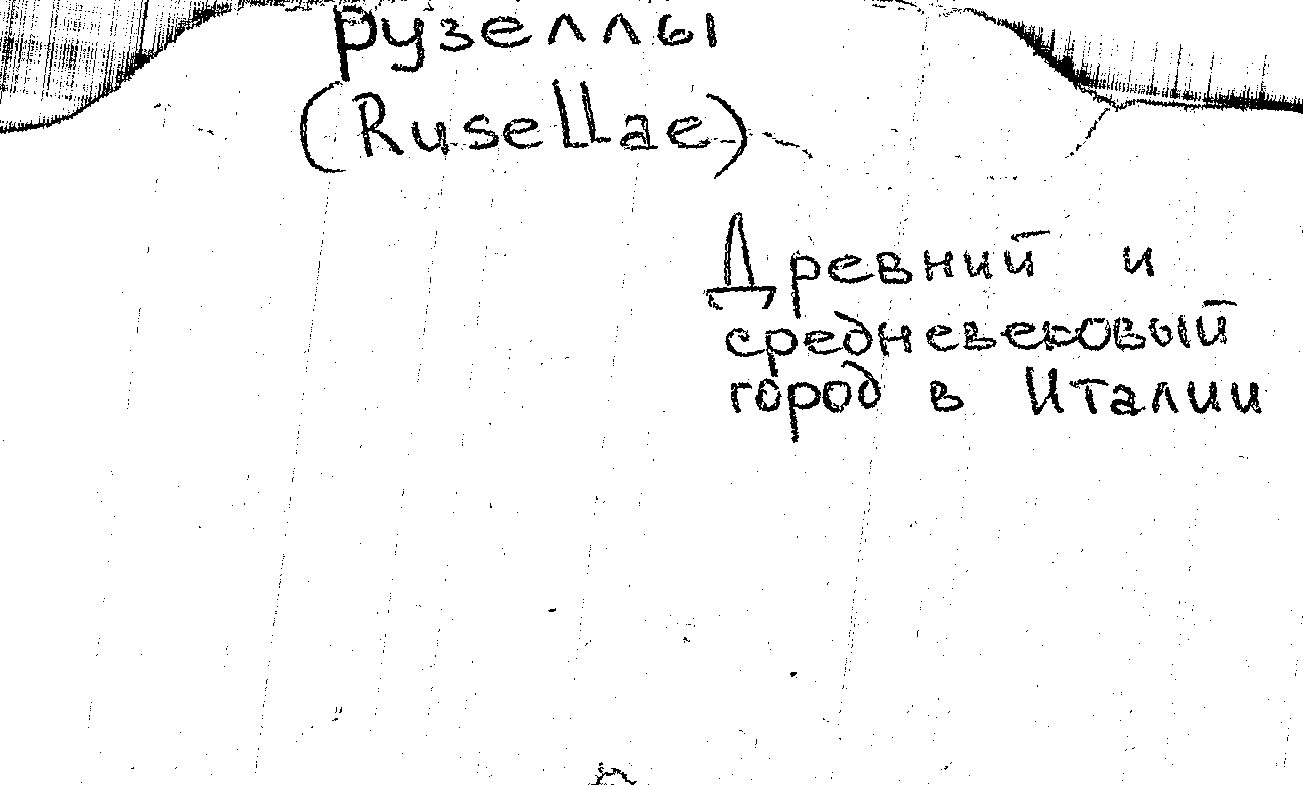 Рузеллы
(Rusellae)
Древний и
средневековый
город в Италии